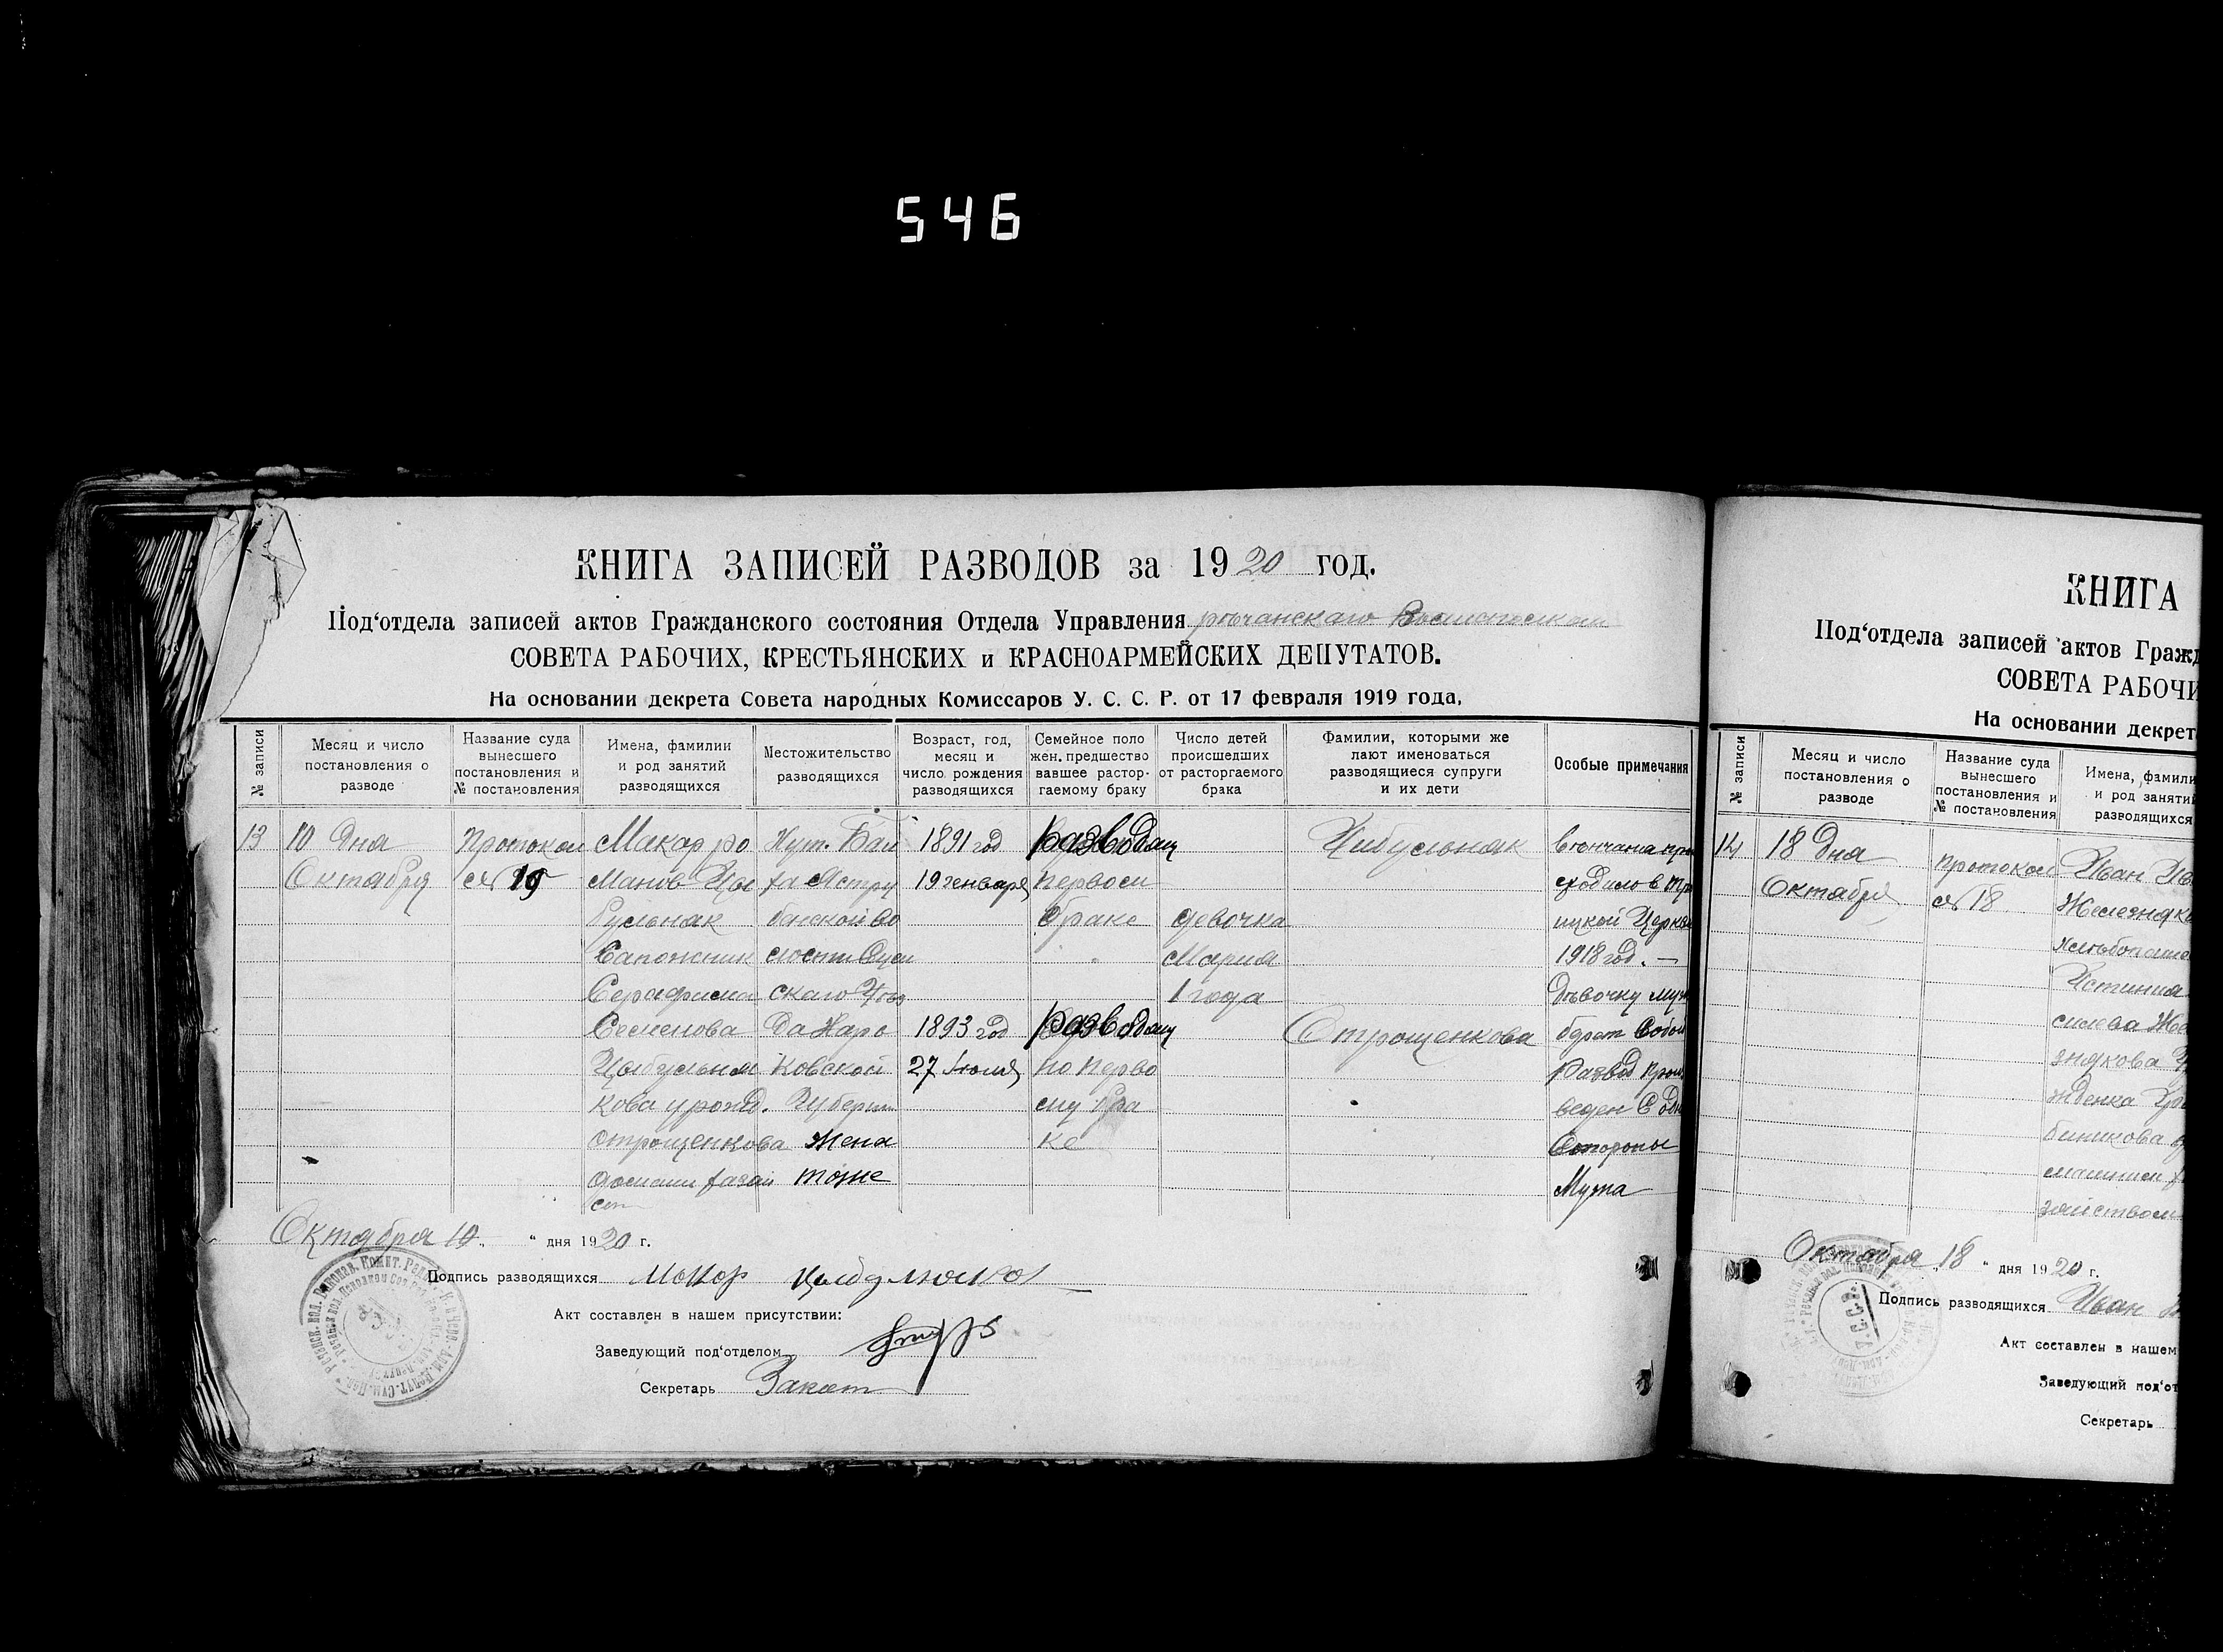 546
КНИГА ЗАПИСЕЙ РАЗВОДОВ за 1920 год.
Под‘отдела записей актов Гражданского состояния Отдела Управления речанскаго
СОВЕТА РАБОЧИХ, КРЕСТЬЯНСКИХ и КРАСНОАРМЕЙСКИХ ДЕПУТАТОВ.
На основании декрета Совета народных Комиссаров У. С. С. Р. от 17 февраля 1919 года,
№ записи
Месяц и число
постановления о
разводе
Название суда
вынесшего
постановления и
№ постановления
Имена, фамилии
и род занятий
разводящихся
Местожительство
разводящихся
Возраст, год,
месяц и
число рождения
разводящихся
Семейное поло
жен. предшество
вавшее растор-
гаемому браку
Число детей
происшедших
от расторгаемого
брака
Фамилии, которыми же
лают именоваться
разводящиеся супруги
и их дети
Особые примечания
13
10 Дня
Октября
Протокол
№ 19
Макар ро
манов Цы
бульняк
Сапожник
Серафима
Семенова
Цыбульня
кова урожд.
Отрощенкова
Хут. Бай
ра Ястру
банской во
лости Сум
скаго Уез
да Харь
ковской
Губерни
жена
тоже
1891 год
19 генваря
1893 год
27 Июля
Разводащ
первом
браке
Разводащ
по перво
му бра
ке
девочка
Мария
1 года
Цибульняк
Отрощенкова
венчания про
сходило в Тро
ицкой Церкви
1918 год. —
Девочку муж
берет Собой
Развод произ
веден С одн
Стороны
Мужа
Октября 10 “ дня 1920 г.
Подпись разводящихся Макар
Акт составлен в нашем присутствии:
Заведующий под‘отделом
Секретарь
КНИГА
Под‘отдела записей актов Гражд
СОВЕТА РАБОЧИ
На основании декрет
№ записи
Месяц и число
постановления о
разводе
Название суда
вынесшего
постановления и
№ постановления
Имена, фамили
и род занятий
разводящихся
14
18 Дня
Октября
протокол
№ 18
Иван Ив
Железняк
хлебопаше
Устиния
Октября 18 “ дня 1920 г.
Подпись разводящихся Иван
Акт составлен в нашем
Заведующий под‘от
Секретарь